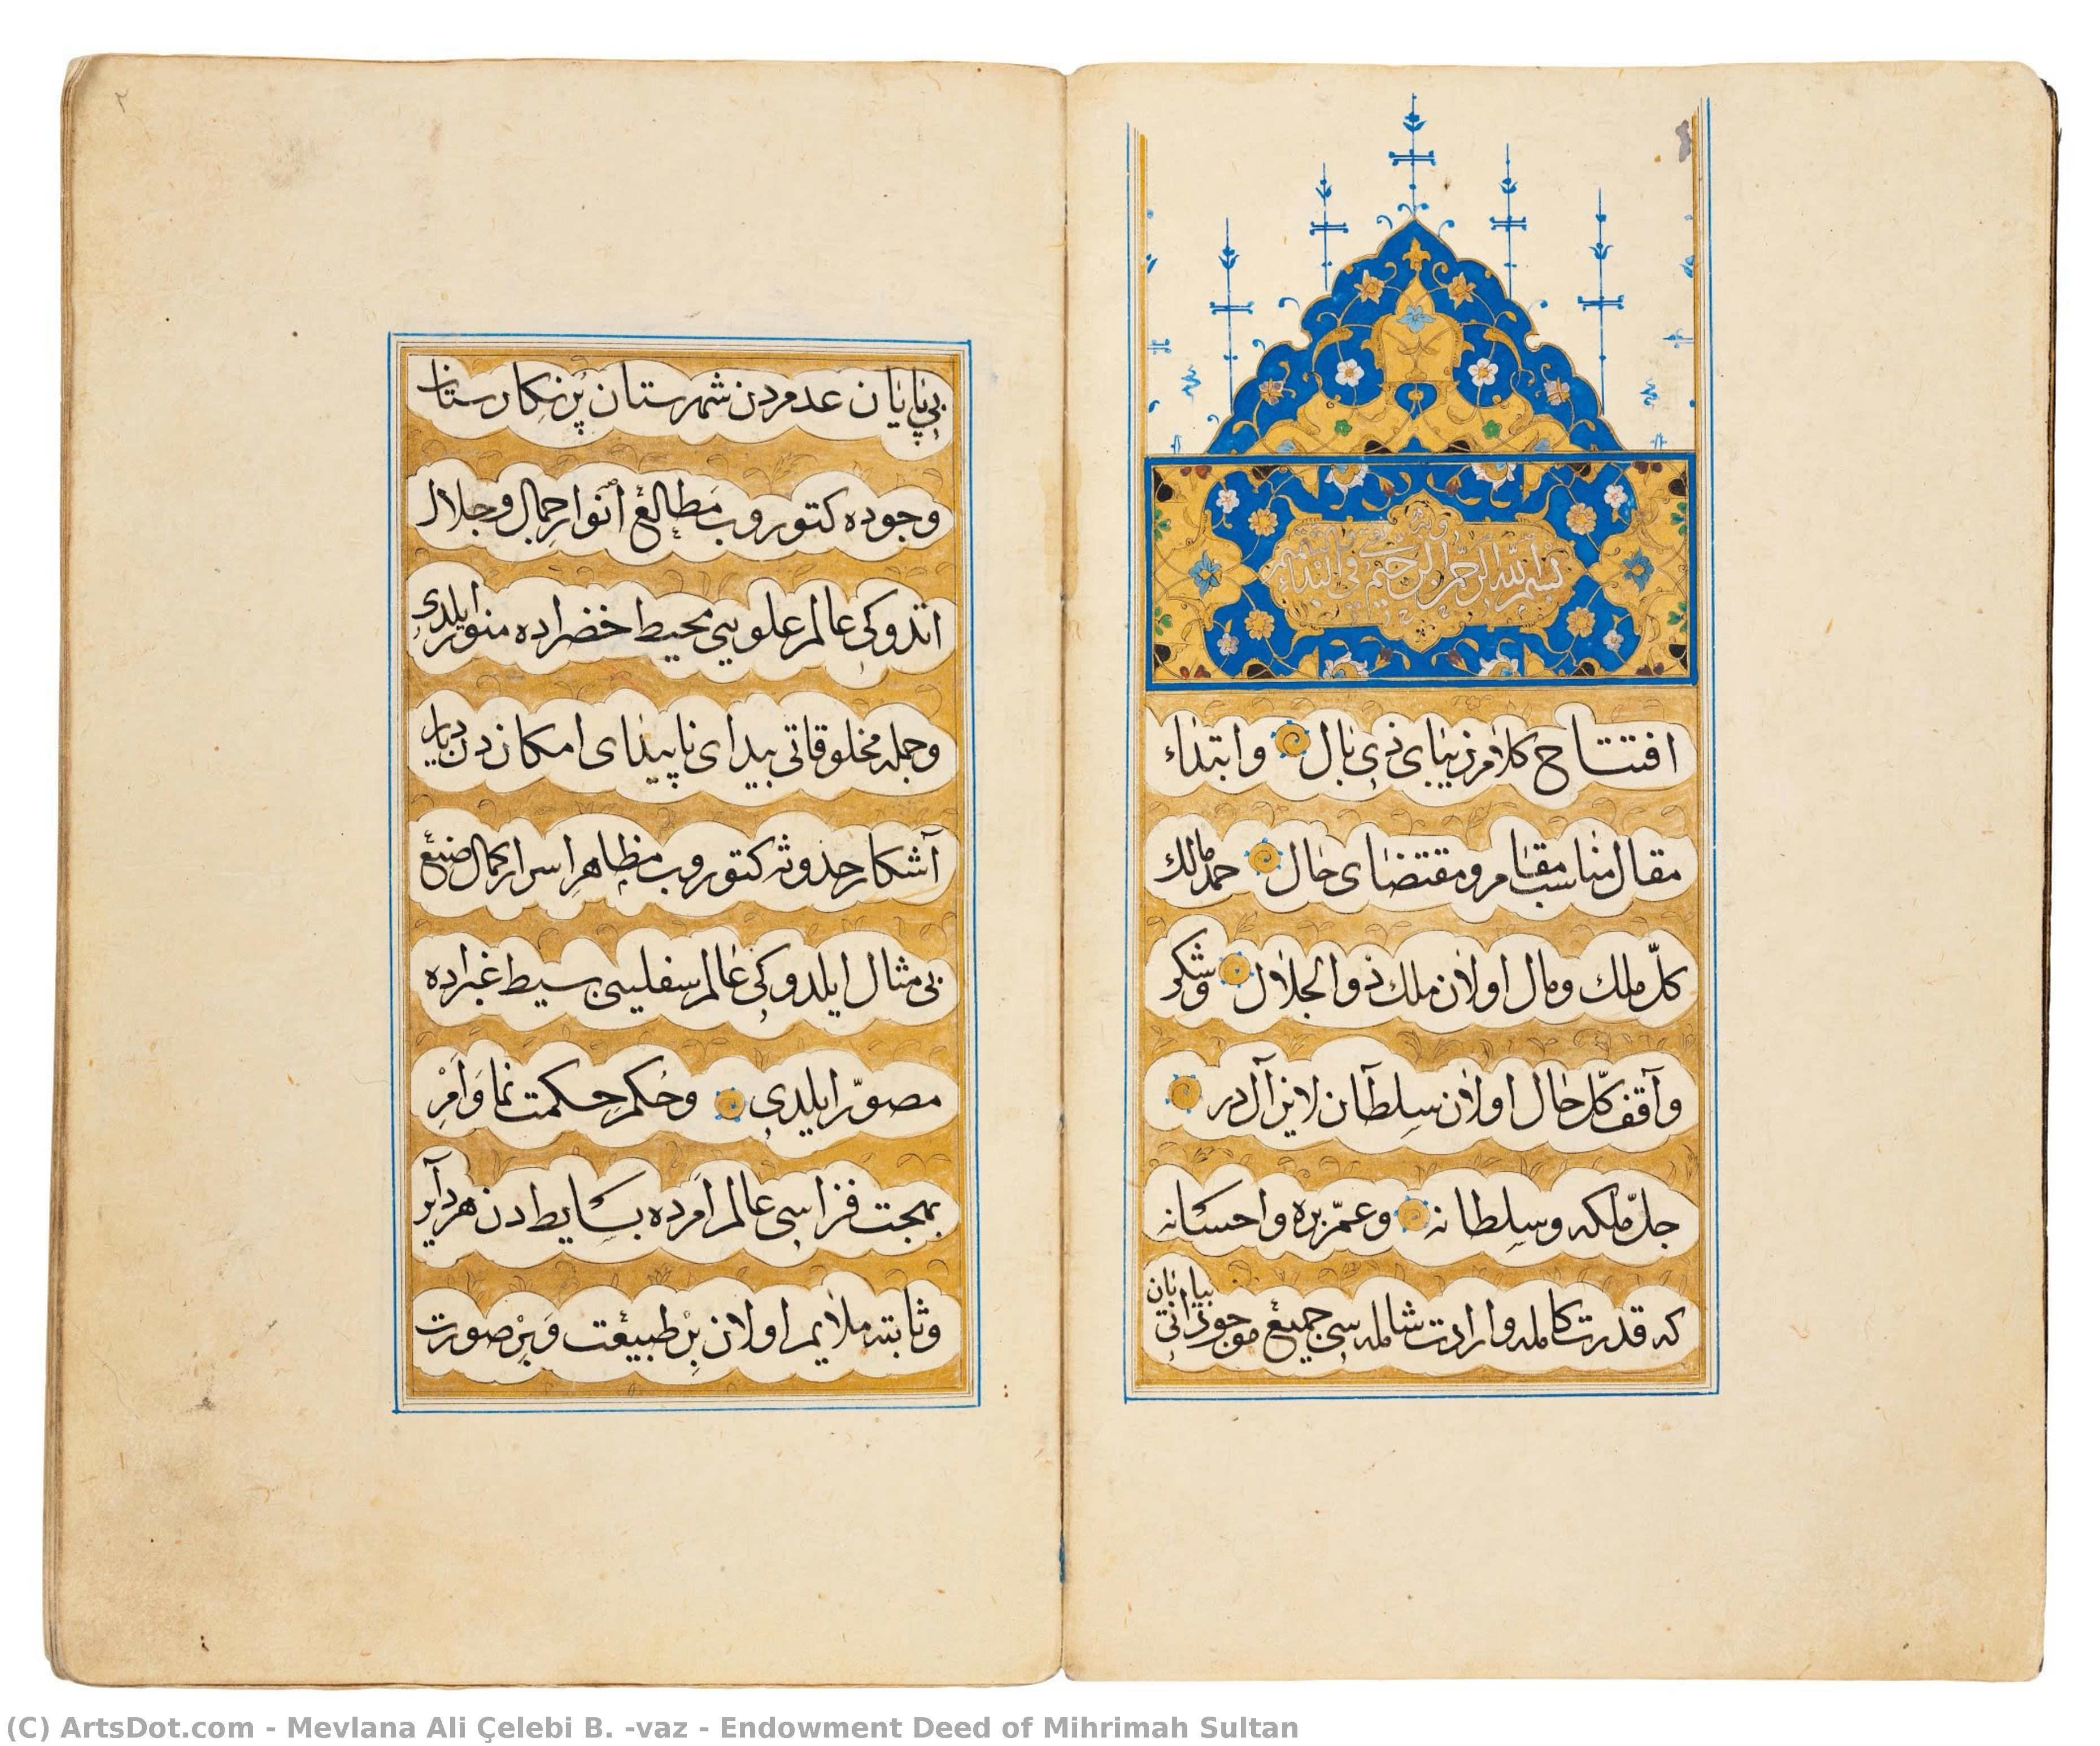 بسم الله الرحمن الرحيم
افتتاح كلام زيباى ذى بال وابتداء
مقال مناسب مقام ومقتضاى حال حمد مالك
كلّ ملك ومال اولان ملك ذو الجلال وشكر
وآقف كلّ حال اولان سلطان لايزآل در
جلّ ملكه وسلطانه وعمّ بره واحسانه
كه قدرت كامله وارادت شامله سى جميع موجوداتى بيابان
بى پايان عدمدن شهرستان پرنكارستان
وجوده كتوروب مطالع أنوار جمال وجلال
اتدوكى عالم علويى محيط خضراده منور ايلدى
وجمله مخلوقاتى بيداى ناپيداى امكاندن ديار
آشكار حدوثه كتوروب مظاهر اسرار كمال صنع
بى مثال ايلدوكى عالم سفليى بسيط غبراده
مصوّر ايلدى وحكم حكمت نما وأمر
بهجت فزاسى عالم أمرده بسايطدن هر دآير
وثابته ملايم اولان بر طبيعت وبر صورت
٢
(C) ArtsDot.com - Mevlana Ali Çelebi B. -vaz - Endowment Deed of Mihrimah Sultan